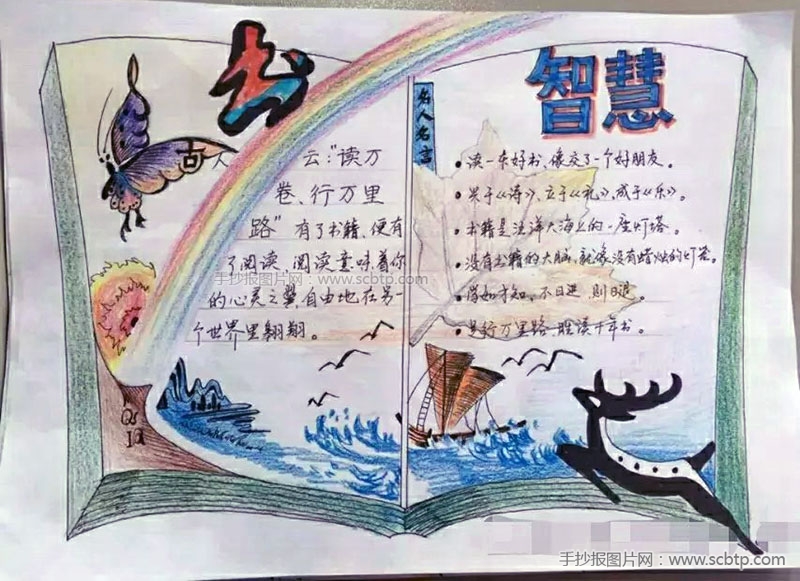 书
古人云:"读万
卷、行万里
路"有了书籍,便有
了阅读,阅读意味着你
的心灵之翼,自由地在另一
个世界里翱翔。
智慧
名人名言
• 读一本好书,像交了一个好朋友。
• 兴于《诗》、立于《礼》、成于《乐》。
• 书籍是汪洋大海上的一座灯塔。
• 没有书籍的大脑,就像没有蜡烛的灯
• 不日进,则日退。
• 行万里路,胜读千年书。
手抄报图片网
scbtp.com
手抄报图片网:www.scbtp.com